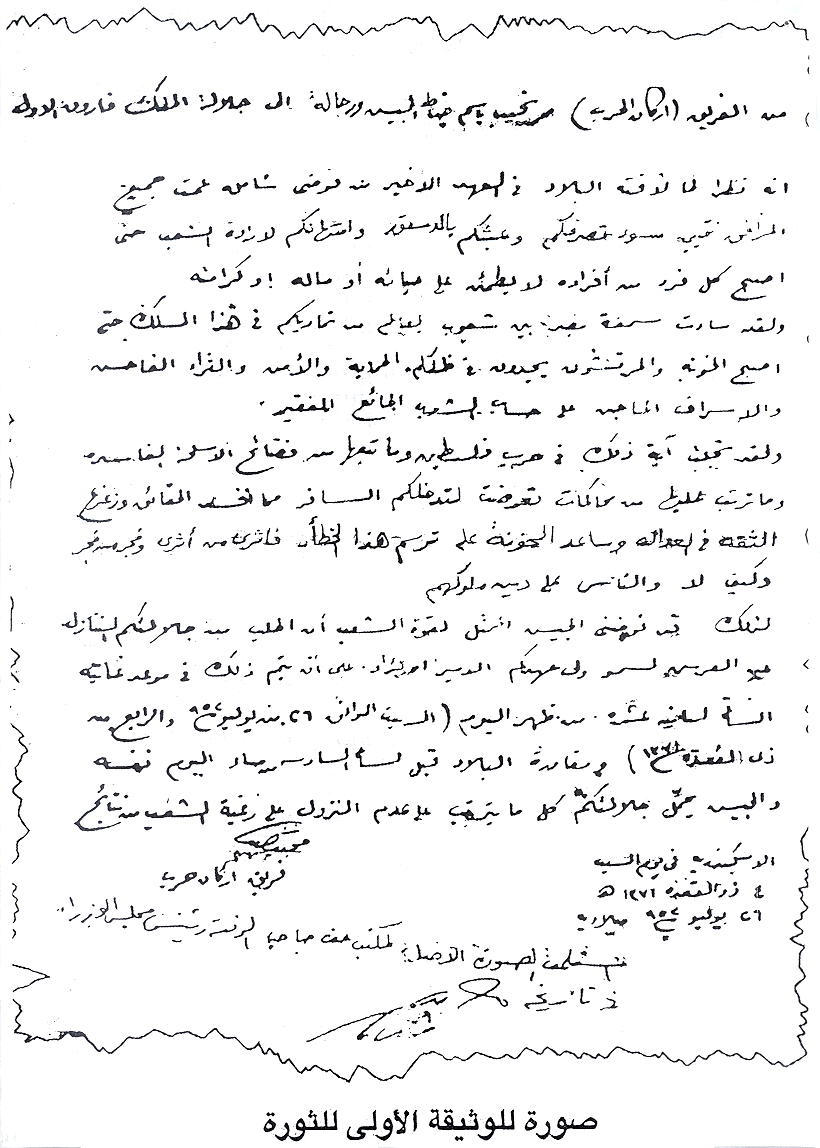 من الفريق (اركان الحرب) محمد نجيب باسم ضباط الجيش ورجاله الى جلالة الملك فاروق الاول
انه نظرا لما لاقته البلاد في العهد الاخير من فوضى شاملة عمت جميع
المرافق نتيجة سوء تصرفكم وعبثكم بالدستور وامتهانكم لارادة الشعب حتى
اصبح كل فرد من أفراده لا يطمئن على حياته أو ماله او كرامته
ولقد ساءت سمعة مصر بين شعوب العالم من تماديكم في هذا المسلك حتى
اصبح الخونة والمرتشون يجدون في ظلكم الحماية والأمن والثراء الفاحش
والاسراف الماجن على حساب الشعب الجائع الفقير.
ولقد تجلت آية ذلك في حرب فلسطين وما تبعها من فضائح الاسلحة الفاسدة
وما ترتب عليها من محاكمات تعرضت لتدخلكم السافر مما افسد الحقائق وزعزع
الثقه في العداله وساعد الخونة على ترسم هذا الخطأ. فاثرى من أثرى وفجر من فجر
وكيف لا والناس على دين ملوكهم
لذلك قد فوضني الجيش الممثل لقوة الشعب أن اطلب من جلالتكم التنازل
عن العرش لسمو ولي عهدكم الامير احمد فؤاد. على أن يتم ذلك في موعد غايته
الساعة الثانية عشره من ظهر اليوم (السبت الموافق ٢٦ من يوليو ٩٥٢ والرابع من
ذي القعده ١٣٧١) ومغادرة البلاد قبل الساعة السادسه من مساء اليوم نفسه
والجيش يحمل جلالتكم كل ما يترتب على عدم النزول على رغبة الشعب من نتائج
فريق اركان حرب
الاسكندريه في يوم السبت
٤ ذو القعده ١٣٧١ هـ
٢٦ يوليو ٩٥٢ ميلاديه
استلمت الصورة الاصلية لمكتب صاحب الرفعة رئيس مجلس الوزراء
في تاريخه
صورة للوثيقة الأولى للثورة